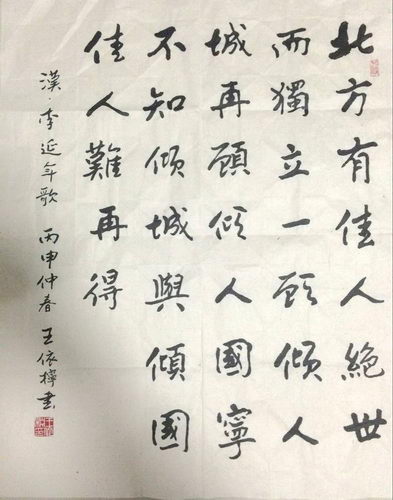 北方有佳人絕世
而獨立一顧傾人
城再顧傾人國寧
不知傾城與傾國
佳人難再得
漢·李延年歌 丙申仲春 王依檸書